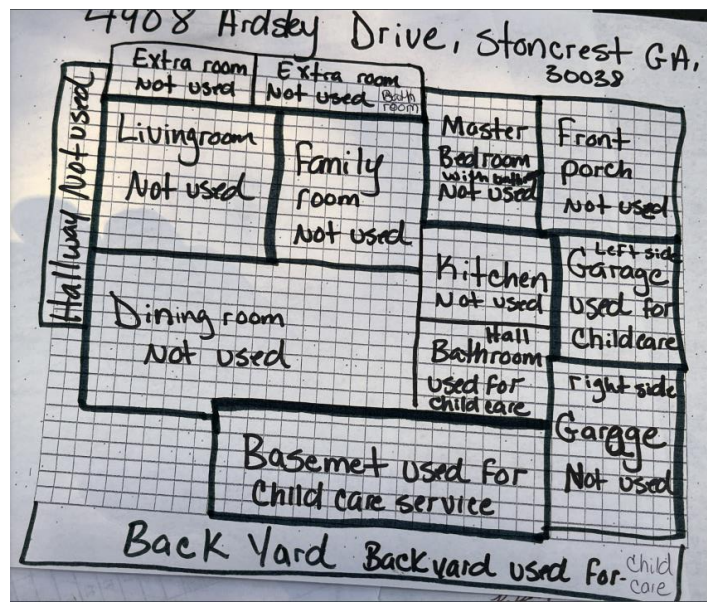 4908 Ardsley Drive, Stoncrest GA,
30038
Extra room
Not used
Extra room
Not used
Bath
room
Hallway Not used
Livingroom
Not used
Family
room
Not used
Master
Bedroom
Not used
Front
porch
Not used
Kitchen
Not used
Left side
Garage
used for
Childcare
Dining room
Not used
Hall
Bathroom
used for
Child care
right side
Garage
Not used
Basemet used for
Child care service
Back Yard Backyard used for-
child
care